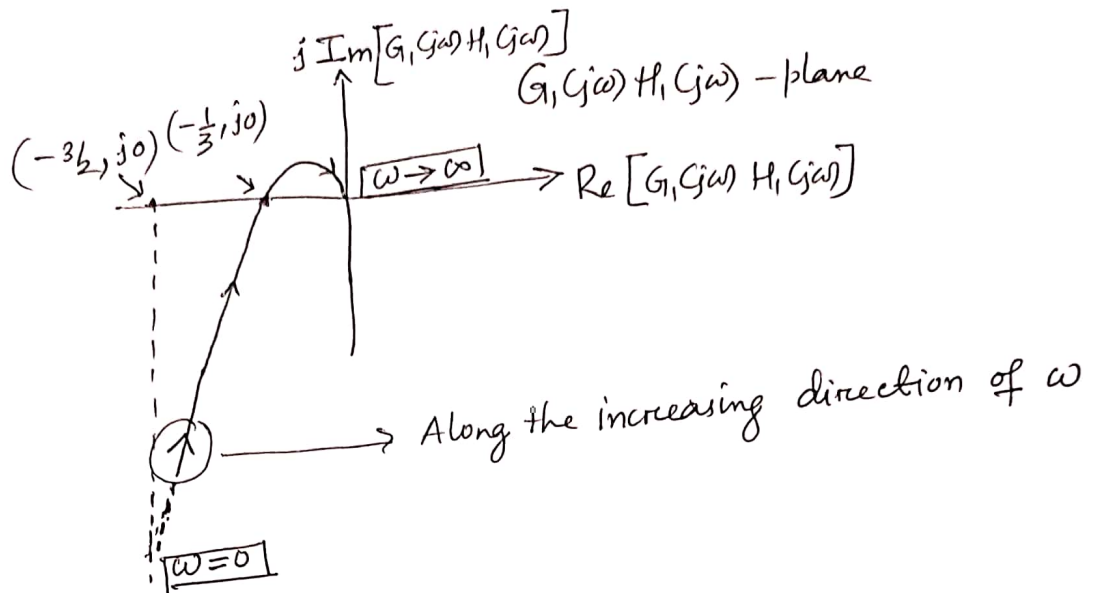 j Im[G₁(jω)H₁(jω)]
G₁(jω) H₁(jω) - plane
(-3/2, j0) (-1/3, j0)
ω → ∞
Re [G₁(jω) H₁(jω)]
Along the increasing direction of ω
ω = 0